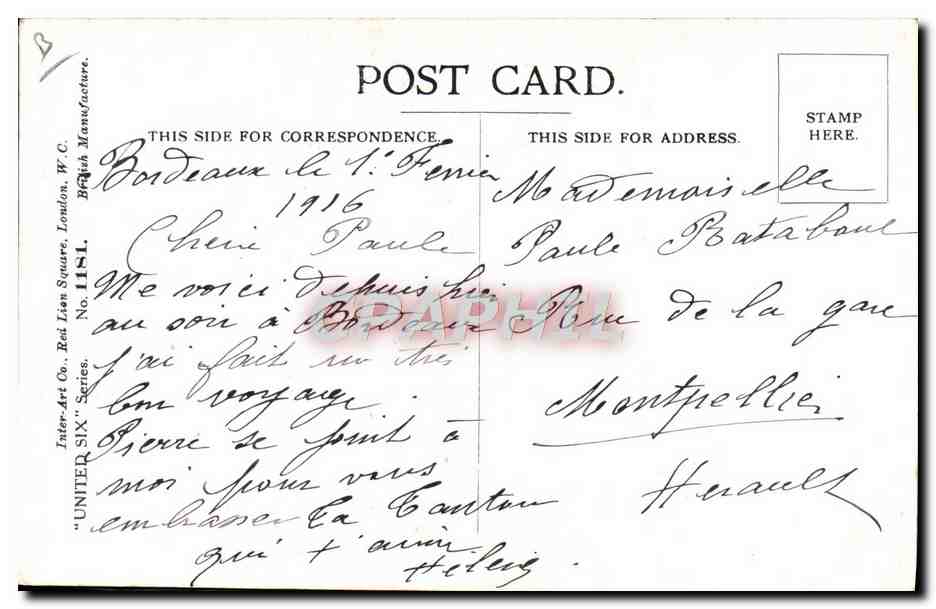 B
POST CARD.
THIS SIDE FOR CORRESPONDENCE.
THIS SIDE FOR ADDRESS.
STAMP
HERE.
Inter-Art Co., Red Lion Square, London, W.C.
British Manufacture.
"UNITED SIX" Series. No. 1181.
Bordeaux le 1er Fevrier
1916
Cherie Paule
Me voici depuis hier
au soir à Bordeaux
j'ai fait un tres
bon voyage.
Pierre se joint à
moi pour vous
embrasser Ta Tantou
qui t'aime
Mademoiselle
Paule
Rue de la gare
Montpellier
Herault